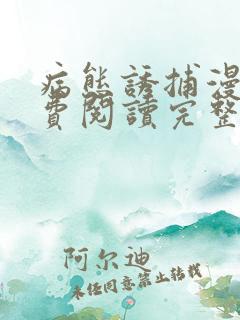 病態誘捕漫
費閱讀完整
阿尔迪
未经同意禁止转载